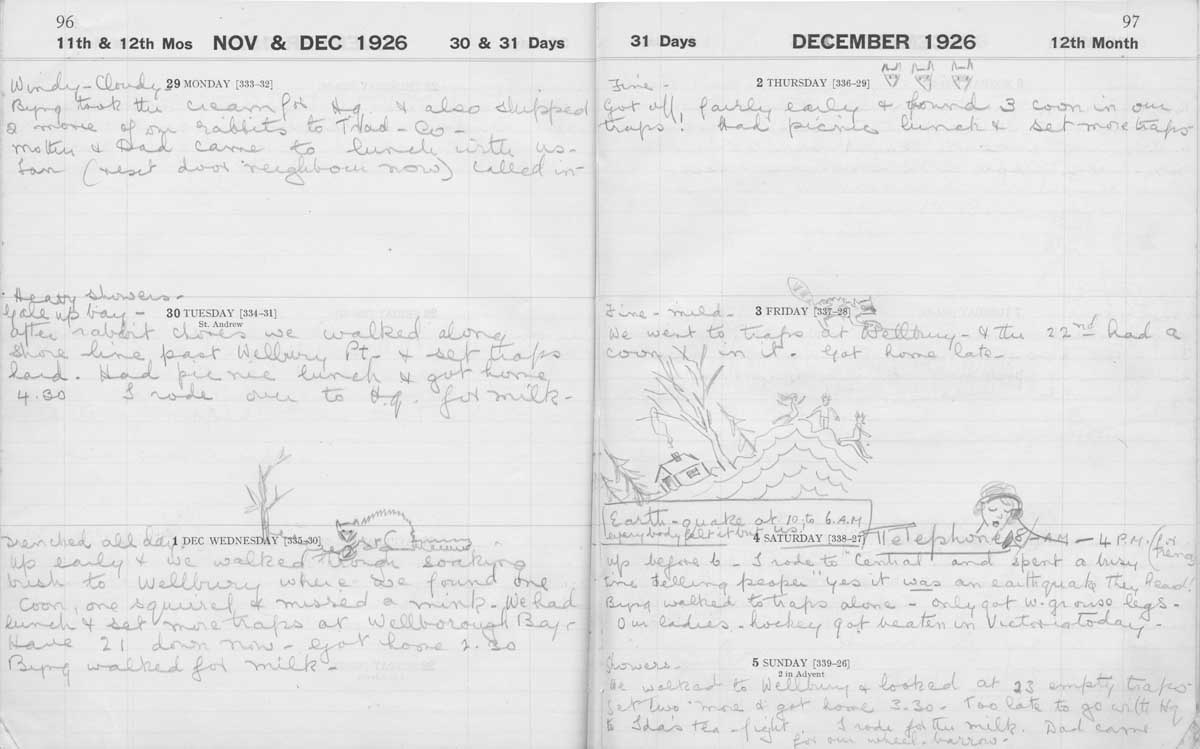 96
11th & 12th Mos NOV & DEC 1926 30 & 31 Days
Windy - Cloudy 29 MONDAY [333-32]
Byng took the cream for Hq & also shipped
2 more of our rabbits to Trad - Co -
Mother & Dad came to lunch with us -
(next door neighbour now) called in -
Heavy showers -
Gale up bay - 30 TUESDAY [334-31]
St. Andrew
After rabbit chores we walked along
shore line past Wellbury Pt - & set traps
hard. Had picnic lunch & got home
4.30 I rode over to Hq. for milk -
Drenched all day. 1 DEC WEDNESDAY [335-30]
Up early & we walked through soaking
bush to Wellbury where we found one
coon, one squirrel & missed a mink - We had
lunch & set more traps at Wellborough Bay -
Have 21 down now - got home 2.30
Byng walked for milk -
97
31 Days DECEMBER 1926 12th Month
Fine - 2 THURSDAY [336-29]
Got off fairly early & found 3 coon in our
traps! Had picnic lunch & set more traps
Fine - mild - 3 FRIDAY [337-28]
We went to traps at Wellbury - & the 22nd had a
coon in it. Got home late -
Earth-quake at 10 to 6 A.M
everybody felt it but us!
4 SATURDAY [338-27] Telephone 8 AM - 4 P.M. (for
Up before 6 - I rode to "Central" and spent a busy
time telling people "yes it was an earthquake they heard.
Byng walked to traps alone - only got w. grouse legs -
Our ladies - hockey got beaten in Victoria today -
Showers - 5 SUNDAY [339-26]
2 in Advent
We walked to Wellbury & looked at 23 empty traps
Set two more & got home 3.30 - Too late to go with Hq
to Ida's tea - fight. I rode for the milk. Dad came
for our wheel-barrow -